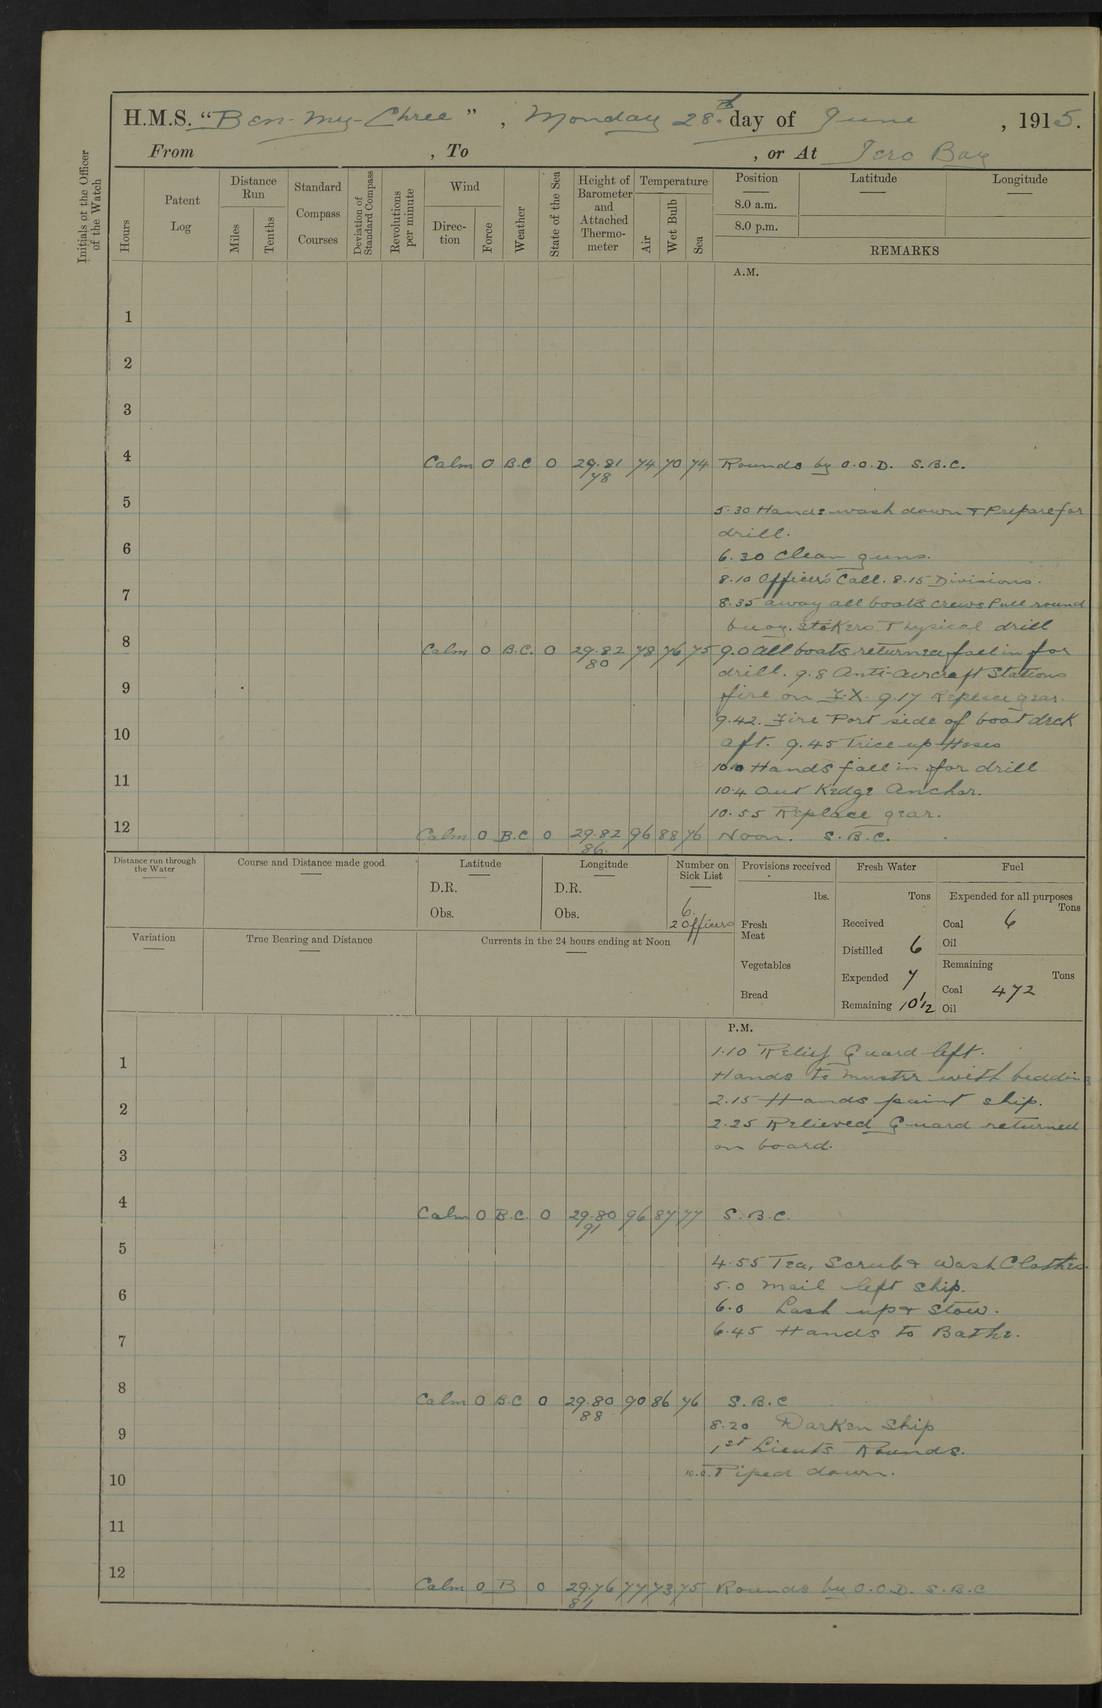 H.M.S. "Ben-my-Chree", Monday 28th day of June, 1915.
From , To , or At Iero Bay
Initials of the Officer of the Watch
Hours
Patent Log
Distance Run
Miles
Tenths
Standard Compass Courses
Deviation of Standard Compass
Revolutions per minute
Wind
Direction
Force
Weather
State of the Sea
Height of Barometer and Attached Thermometer
Temperature
Air
Wet Bulb
Sea
Position
Latitude
Longitude
8.0 a.m.
8.0 p.m.
REMARKS
A.M.
1
2
3
4 Calm 0 B.C 0 29.81 74 70 74 Rounds by O.O.D. S.B.C.
78
5
5.30 Hands wash down & Prepare for
drill.
6
6.30 Clean guns.
8.10 Officers Call. 8.15 Divisions.
7
8.35 away all boats crews Pull round
buoy. Stokers Physical drill
8 Calm 0 B.C. 0 29.82 78 76 75 9.0 All boats returned fall in for
80
drill. 9.8 Anti-Aircraft Stations
9
fire on F.X. 9.17 Replace gear.
9.42. Fire Port side of boat deck
10
aft. 9.45 Trice up Hoses
10.0 Hands fall in for drill
11
10.4 Out Kedge Anchor.
10.55 Replace gear.
12 Calm 0 B.C 0 29.82 96 88 76 Noon. S.B.C.
86.
Distance run through the Water
Course and Distance made good
Latitude
D.R.
Obs.
Longitude
D.R.
Obs.
Number on Sick List
6.
2 Officers
Provisions received
lbs.
Fresh Meat
Vegetables
Bread
Fresh Water
Tons
Received
Distilled 6
Expended 7
Remaining 101/2
Fuel
Expended for all purposes
Tons
Coal 6
Oil
Remaining
Tons
Coal 472
Oil
Variation
True Bearing and Distance
Currents in the 24 hours ending at Noon
P.M.
1.10 Relief Guard left.
1
Hands to muster with bedding
2.15 Hands paint ship.
2
2.25 Relieved Guard returned
on board.
3
4 Calm 0 B.C. 0 29.80 96 87 77 S.B.C.
91
5
4.55 Tea, Scrub & Wash Clothes.
5.0 Mail left ship.
6
6.0 Lash up & Stow.
6.45 Hands to Bathe.
7
8 Calm 0 B.C 0 29.80 90 86 76 S.B.C
88
8.20 Darken Ship
9
1st Lieuts Rounds.
10.0. Piped down.
10
11
12 Calm 0 B 0 29.76 77 73 75 Rounds by O.O.D. S.B.C
81